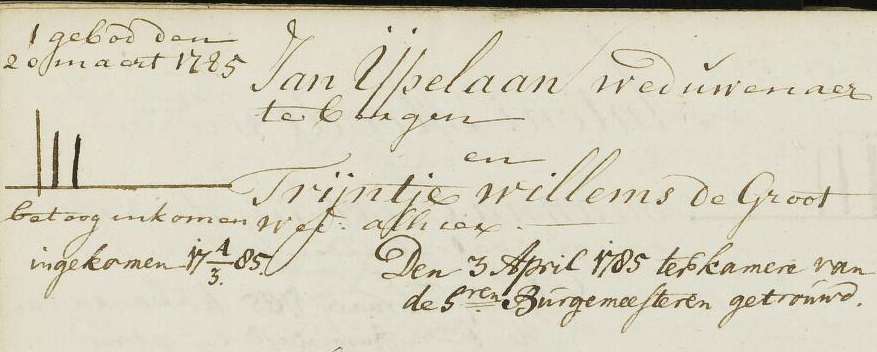 1 gebod den
20 maert 1785
Jan IJpelaan weduwenaer
te Bergen
en
Trijntje willems de Groot
betoog inkomen
wed: alhier.
ingekomen 17 4/3. 85.
Den 3 April 1785 ter kamere van
de Sren Burgemeesteren getrouwd.